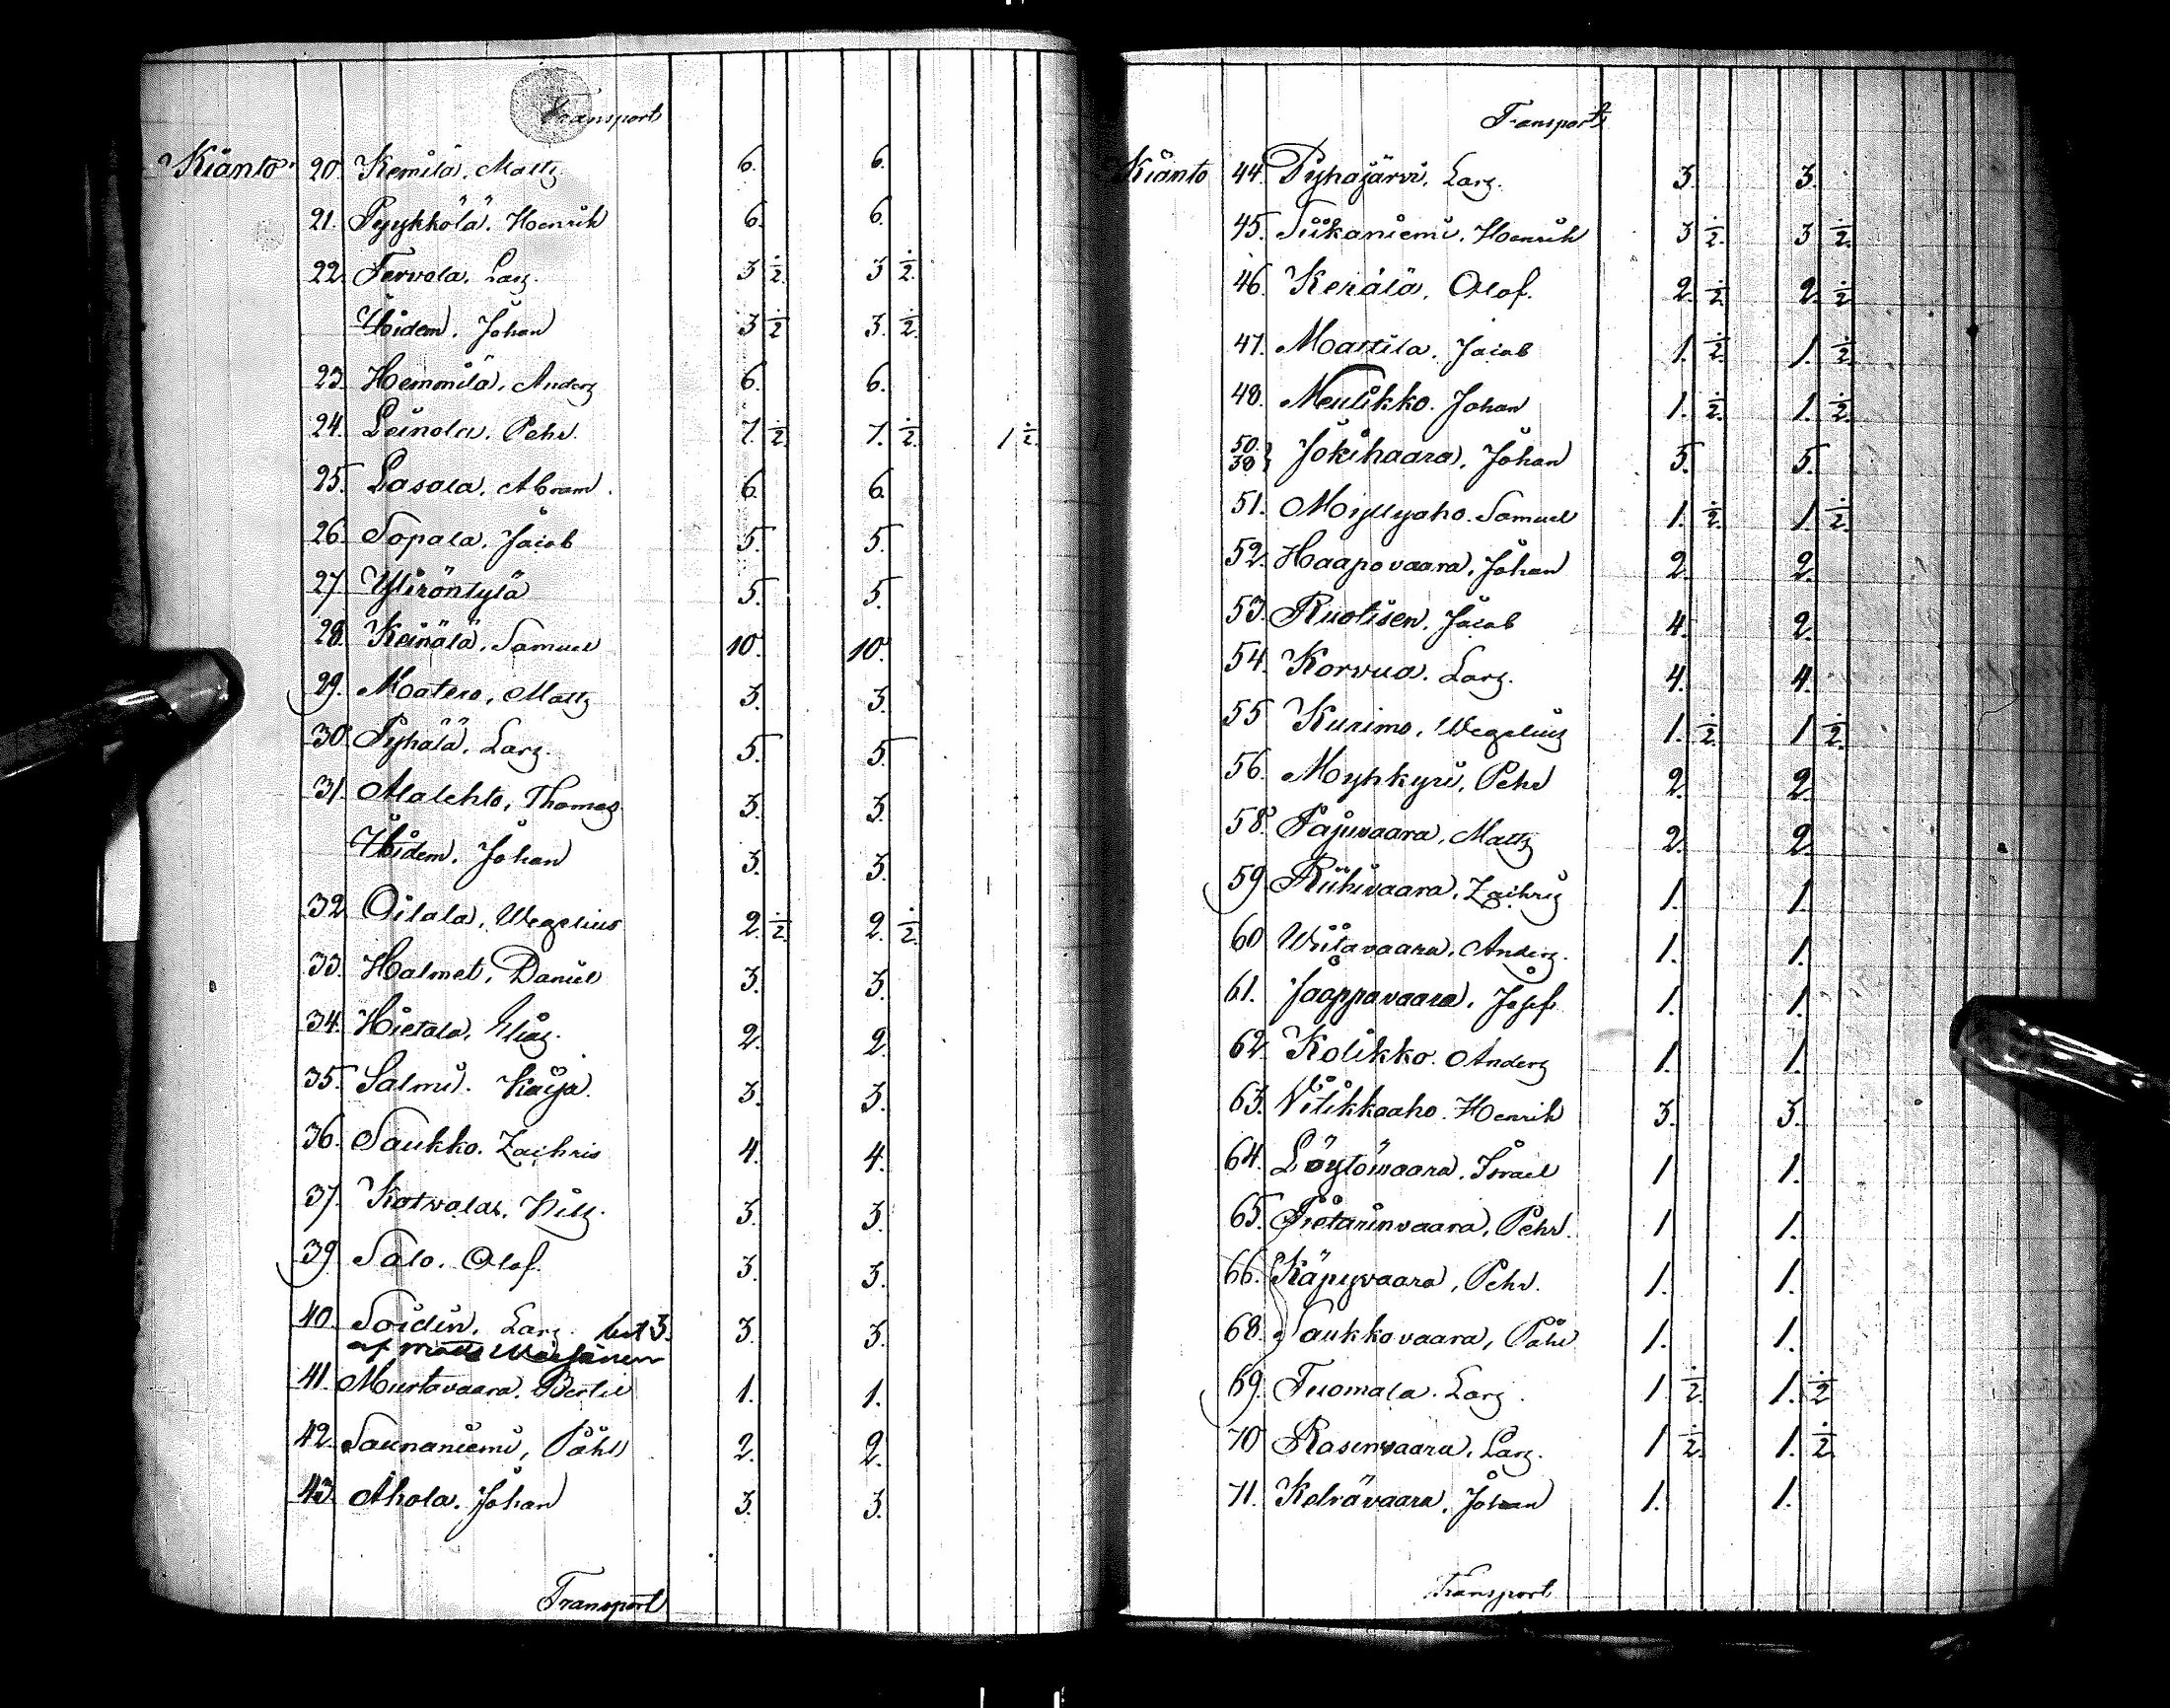 Transport
Kianto 20. Kemilä, Mattz 6. 6.
21. Pyykkölä, Henrik 6. 6.
22. Tervola, Larz. 3 1/2. 3 1/2.
Ibidem, Johan 3 1/2 3. 1/2.
23. Hemmilä, Anderz 6. 6.
24. Leinola, Pehr. 7. 1/2. 7. 1/2. 1 1/2.
25. Lasala, Abram. 6. 6.
26. Sopala, Jacob 5. 5.
27. Yliröntylä 5. 5.
28. Keinälä, Samuel 10. 10.
29. Matero, Mattz 3. 3.
30. Pyhälä, Larz. 5. 5.
31. Alalehto, Thomaz 3. 3.
Ibidem, Johan 3. 3.
32. Oilala, Wegelius 2. 1/2. 2. 1/2.
33. Halmet, Daniel 3. 3.
34. Hietala, Eliaz. 2. 2.
35. Salmi. Kaija. 3. 3.
36. Saukko. Zachris 4. 4.
37. Katvala, Nilz. 3. 3.
39. Salo. Olof. 3. 3.
40. Soidin, Larz. 3. 3. 3.
af
41. Murtovaara, Bertil 1. 1.
42. Saunaniemi, Påhl 2. 2.
43. Ahola. Johan 3. 3.
Transport
Transport
Kianto 44. Pyhäjärvi, Larz. 3. 3.
45. Siikaniemi, Henrik 3 1/2. 3 1/2.
46. Kerälä, Olof. 2. 1/2. 2. 1/2
47. Mattila, Jacob 1. 1/2 1. 1/2
48. Meulikko. Johan 1. 1/2. 1. 1/2.
50. 38 } Jokihaara, Johan 5. 5.
51. Myllyaho. Samuel 1. 1/2 1. 1/2
52. Haapovaara, Johan 2. 2.
53. Ruotisen, Jacob 4. 2.
54. Korvua. Larz. 4. 4.
55 Kurimo, Wegeliuz 1. 1/2. 1 1/2.
56. Myhkyri, Pehr 2. 2.
58. Pajuvaara, Mattz 2. 2.
59. Riihivaara, Zachriz 1. 1.
60 Wiitavaara, Anderz. 1. 1.
61. Jaappavaara, Josef 1. 1.
62. Kolikko. Anderz 1. 1.
63. Wilikkaaho. Henrik 3. 3.
64. Löytövaara, Israel 1 1.
65. Pietarinvaara, Pehr. 1 1.
66. Käpyvaara, Pehr. 1. 1.
68. Saukkovaara, Påhl 1. 1.
69. Tuomala. Larz. 1. 1/2 1. 1/2
70 Rasinvaara, Larz. 1 1/2 1. 1/2
71. Kelvävaara, Johan 1. 1.
Transport